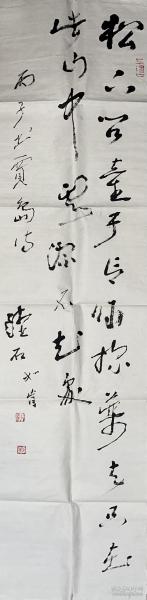 松下問童子言師採藥去只在
此山中雲深不知處
丙子書賈島詩